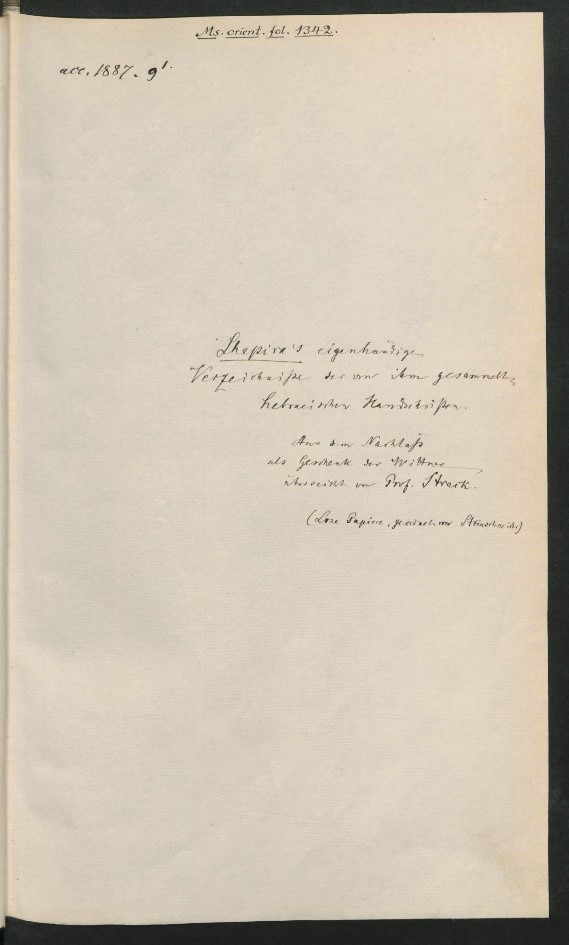 Ms. orient. fol. 1342.
acc. 1887. 91.
Shapira's eigenhändige
Verzeichniße der von ihm gesammelten
hebraeischen Handschriften.
Aus dem Nachlaß
als Geschenk der Wittwe
überreicht von Prof. Strack.
(Lose Papiere, geordnet von Steinschneider)